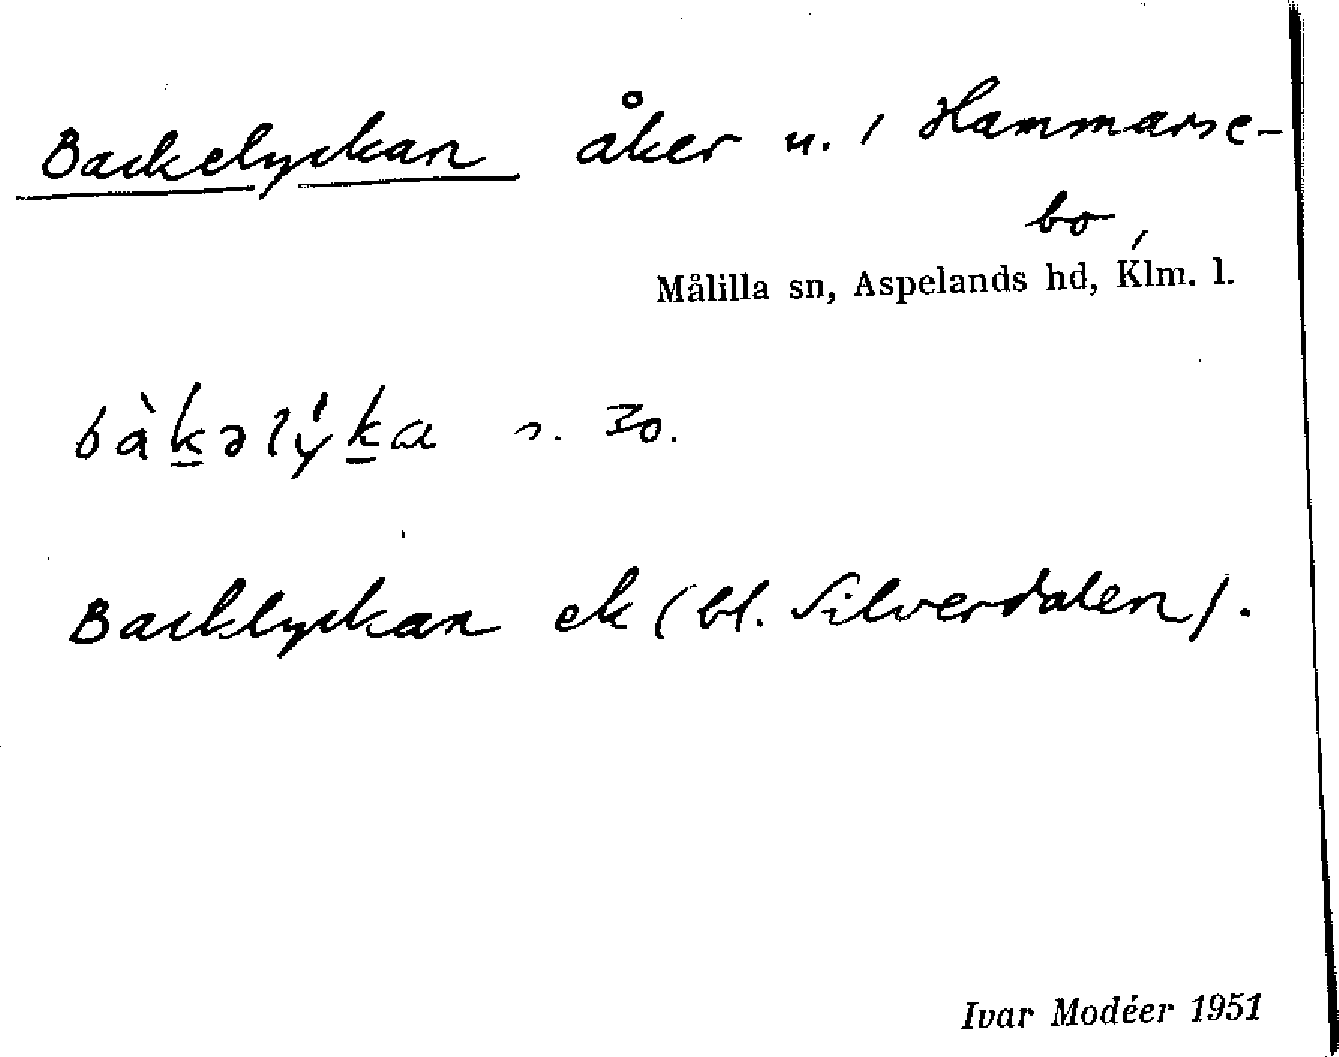 Backelyckan åker u. i Hammarse-
bo,
Målilla sn, Aspelands hd, Klm. l.
bàk̲əlẏ́k̲a s. 30.
Backlyckan ek (bl. Silverdalen).
Ivar Modéer 1951